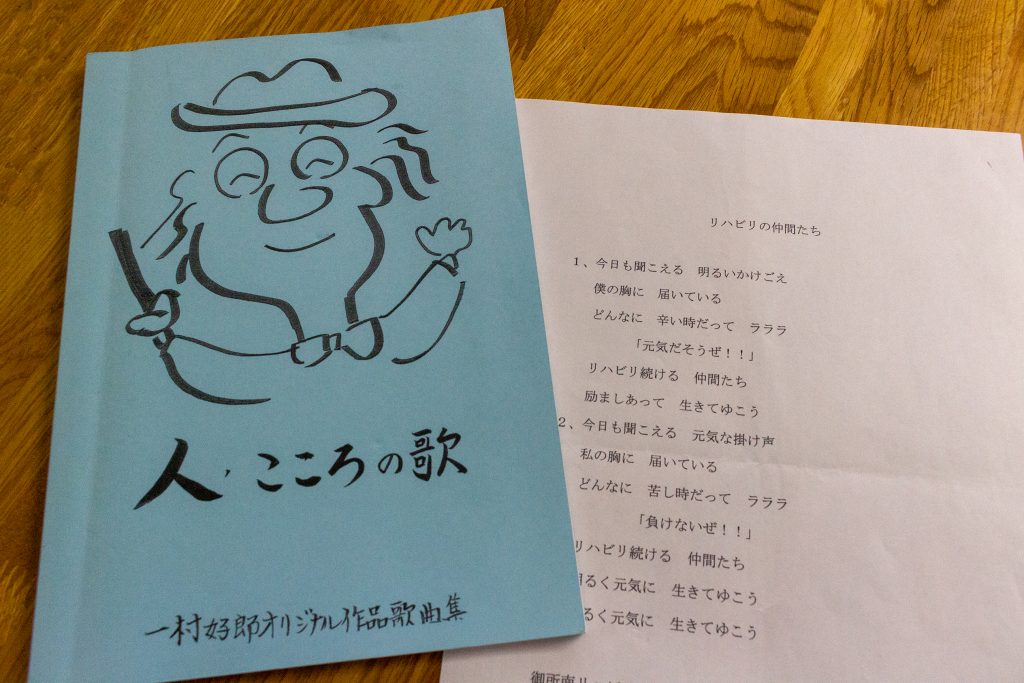 人、こころの歌
一村好郎オリジナル作品歌曲集
リハビリの仲間たち
１、今日も聞こえる　明るいかけごえ
僕の胸に　届いている
どんなに　辛い時だって　ラララ
「元気だそうぜ！！」
リハビリ続ける　仲間たち
励ましあって　生きてゆこう
２、今日も聞こえる　元気な掛け声
私の胸に　届いている
どんなに　苦し時だって　ラララ
「負けないぜ！！」
リハビリ続ける　仲間たち
るく元気に　生きてゆこう
るく元気に　生きてゆこう
御所南リハビリ